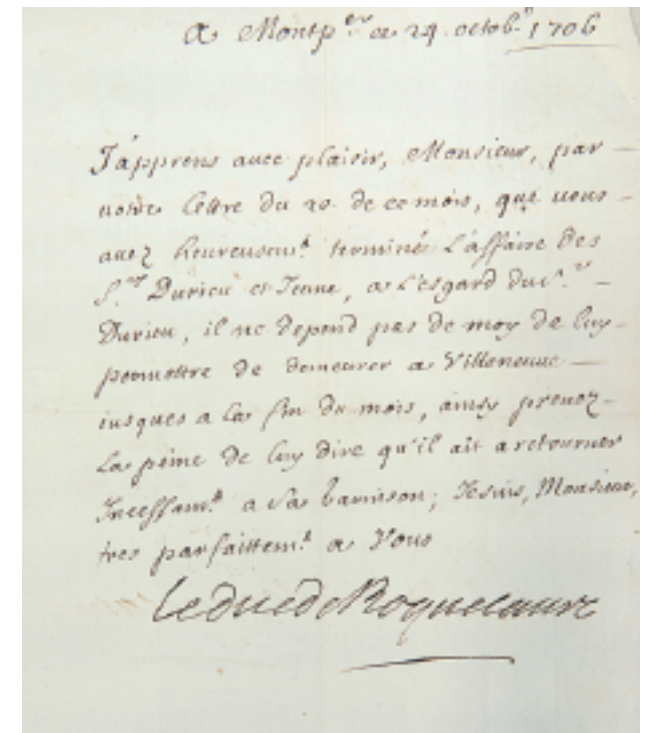 A Montp.er ce 24 octob.e 1706
J'apprens avec plaisir, Monsieur, par
vostre lettre du 20 de ce mois, que vous
avez heureusem.t terminé l'affaire des
S.rs Durieu et Jeune, a l'esgard du S.r
Durieu, il ne depend pas de moy de luy
permettre de demeurer a Villeneuve
iusques a la fin du mois, ainsy prenez
la peine de luy dire qu'il ait a retourner
Incessam.t a sa Garnison; Je suis, Monsieur,
tres parfaittem.t a Vous
Le duc de Roquelaure